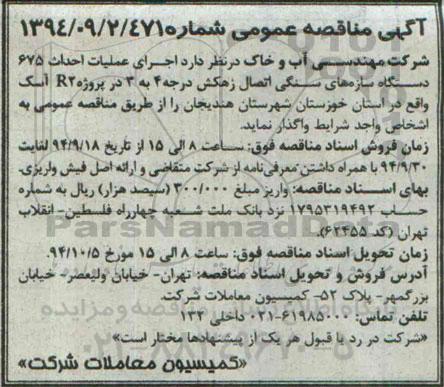 آگهی مناقصه عمومی شماره ۱۳۹۴/۰۹/۲/۴۷۱
شرکت مهندسی آب و خاک درنظر دارد اجرای عملیات احداث ۶۷۵
دستگاه سازه‌های سنگی اتصال زهکش درجه۴ به ۳ در پروژهR۲ آسک
واقع در استان خوزستان شهرستان هندیجان را از طریق مناقصه عمومی به
اشخاص واجد شرایط واگذار نماید.
زمان فروش اسناد مناقصه فوق: ساعت ۸ الی ۱۵ از تاریخ ۹۴/۹/۱۸ لغایت
۹۴/۹/۳۰ با همراه داشتن معرفی‌نامه از شرکت متقاضی و ارائه اصل فیش واریزی.
بهای اسناد مناقصه: واریز مبلغ ۳۰۰/۰۰۰ (سیصد هزار) ریال به شماره
حساب ۱۷۹۵۳۱۹۴۹۲ نزد بانک ملت شعبه چهارراه فلسطین- انقلاب
تهران (کد ۶۲۴۵۵).
زمان تحویل اسناد مناقصه فوق: ساعت ۸ الی ۱۵ مورخ ۹۴/۱۰/۵.
آدرس فروش و تحویل اسناد مناقصه: تهران- خیابان ولیعصر- خیابان
بزرگمهر- پلاک ۵۲- کمیسیون معاملات شرکت.
تلفن تماس: ۶۱۹۸۵۰۰۰-۰۲۱ داخلی ۱۳۴
«شرکت در رد یا قبول هر یک از پیشنهادها مختار است»
«کمیسیون معاملات شرکت»
ParsNamadData